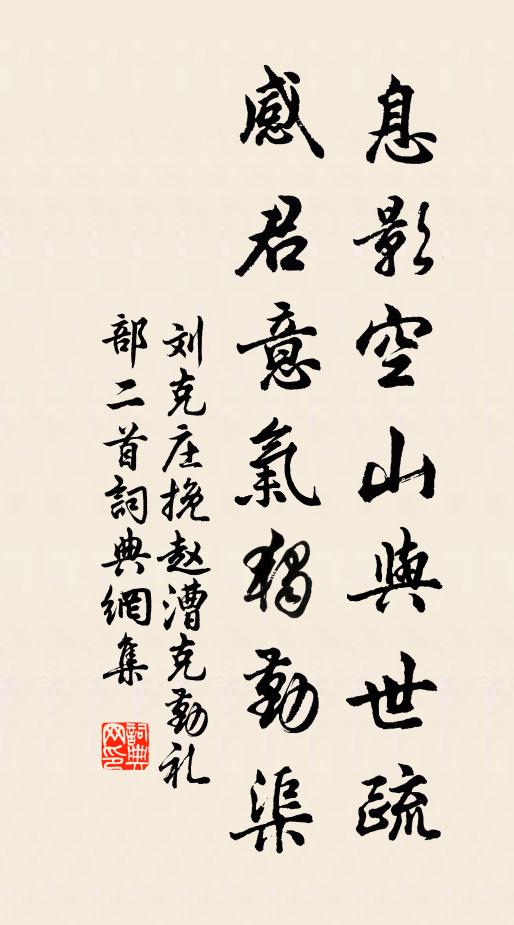 息影空山與世疏
感君意氣獨勤渠
刘克庄挽赵漕克勤礼
部二首詞典網集
詞典
网印